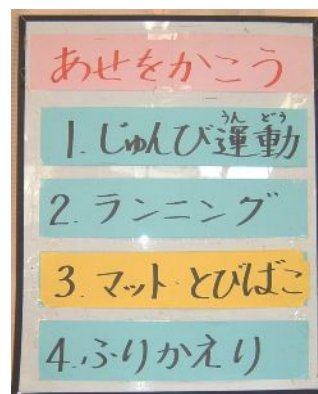 あせをかこう
1. じゅんび運動
2. ランニング
3. マット・とびばこ
4. ふりかえり